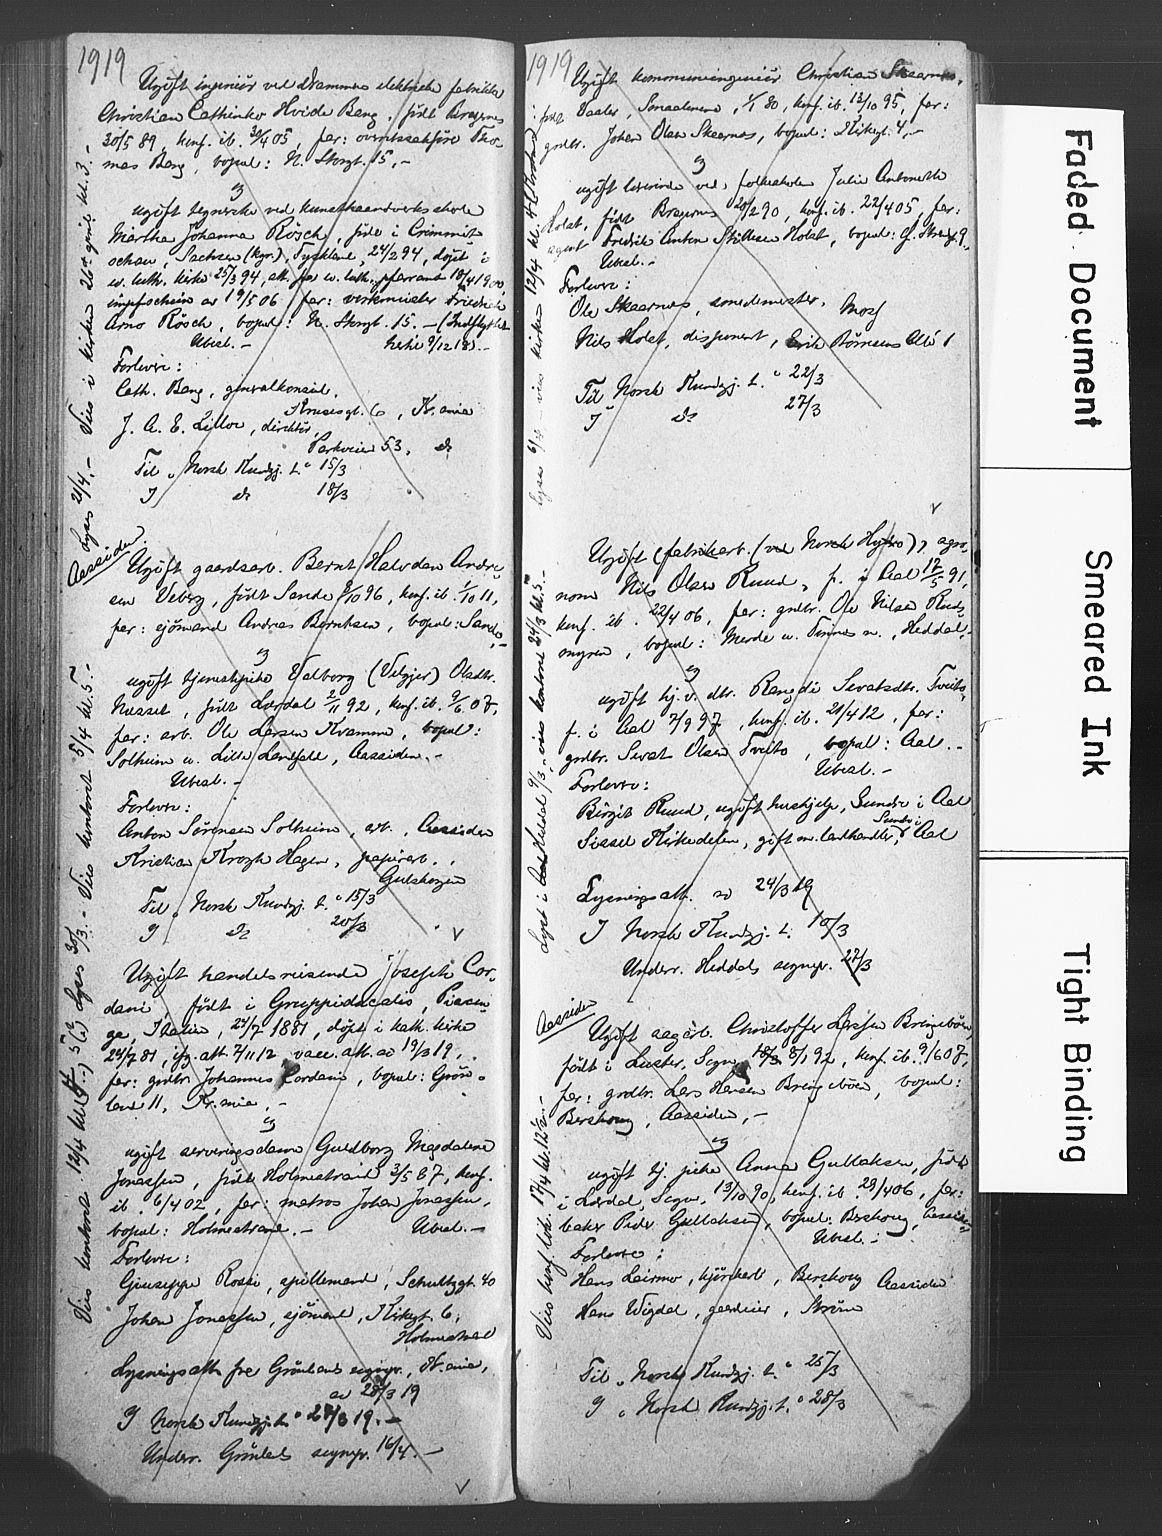 1919
Ugift ingeniør ved Drammens elektriske fabrikk
Christian Cathinko Hvide Bang, født Bragernes
30/5 89, konf. ib. 30/4 05, far: overretssakfører Tho-
mas Bang, bopæl: N. Storgt. 15.-
og
ugift tegnerske ved kunsthaandverksskole
Martha Johanna Rösch, født i Crimmit-
schau, Sachsen (kgr.), Tyskland, 24/2 94, døpt i
ev. luth. kirke 25/3 94, att. fra ev. luth. pfarramt 18/4 1900,
impfschein av 19/5 06 far: verkmeister Friedrich
Arno Rösch, bopæl: N. Storgt. 15. - (Indflyttet
Ubesl. - hertil 9/12 18).-
Forlovere:
Cath. Bang, generalkonsul,
Kruses gt. 6, Kr.ania
J. A. E. Lilloe, direktør,
Parkveien 53, do
Til Norsk Kundgj. t. 15/3
I do 18/3
Lyses 21/4. - Vies i kirken 26de april kl. 3. -
Aassiden.
Ugift gaardsarb. Bernt Halvdan Andre-
sen Veberg, født Sande 9/10 96, konf. ib. 1/10 11,
far: sjömand Andreas Berntsen, bopæl: Sande,-
og
ugift tjenestepike Valborg (Velgjer) Olsdtr.
Nesset, født Lærdal 2/11 92, konf. ib. 9/6 07,
far: arb. Ole Larsen Kvamme, bopæl:
Solheim u. Lille Landfald, Aassiden.-
Ubesl. -
Forlovere:
Anton Sørensen Solheim, arb., Aassiden
Kristian Krogh Hagen, papirarb.,
Gulskogen
Til Norsk Kundgj. t. 15/3
I do 20/3
Lyses 30/3. - Vies kontoret 5/4 kl. 5. -
Ugift handelsreisende Joseph Cor-
dani født i Gruppidacalis, Piacen-
ge, Italien, 24/7 1881, døpt i kath. kirke
24/7 81, ifg. att. 7/11 12 vacc. att. av 19/3 19,
far: grdbr. Johannes Cordani, bopæl: Grøn-
land 11, Kr.ania. -
og
ugift serveringsdame Guldborg Magdalene
Jonassen, født Holmestrand 3/5 87, konf.
ib. 6/4 02, far: matros Johan Jonassen,
bopæl: Holmestrand. - Ubesl. -
Forlovere:
Giuseppe Rossi, spillemand, Schultzgt. 40
Johan Jonassen, sjömand, Kirkegt. 6,
Holmestrand
Lysningsatt. fra Grønlands sognepr., Kr.ania,
av 28/3 19
I Norsk Kundgj. t. 28/3 19. -
Underr. Grønlands sognepr. 16/4. -
Vies kontoret 12/4
1919
Ugift kommuneingeniør Christian Skaarnes,
født Vaaler, Smaalenene, 1/1 80, konf. ib. 13/10 95, far:
grdbr. Johan Olsen Skaarnes, bopæl: Kirkegt. 4,-
og
ugift lærerinde ved folkeskolen Julie Antonette
Holst, født Bragernes 20/2 90, konf. ib. 22/4 05, far:
agent Fredrik Anton Stillesen Holst, bopæl: G. Strandgt. 9.
Ubesl. -
Forlovere:
Ole Skaarnes, smedemester, Moss
Nils Holst, disponent, Erik Børresens Alle 1
Til Norsk Kundgj. t. 22/3
I do 27/3
Lyses 6/4 - vies kirken 12/4 kl. 4
Ugift (fabrikarb. (ved Norsk Hydro)), agro-
nom Nils Olsen Ruud, f. i Aal 12/5 91,
konf. ib. 22/4 06, far: grdbr. Ole Nilsen Ruds-
myren, bopæl: Merde u. Tinnes n., Heddal,-
og
ugift hj.v. dtr. Rangdi Sevatsdtr. Tveito,
f. i Aal 7/9 97, konf. ib. 21/4 12, far:
grdbr. Sevat Olsen Tveito, bopæl: Aal. -
Ubesl. -
Forlovere:
Birgit Ruud, ugift hushjelp, Sundre i Aal
Sissel Kirkedelen, gift m. landhandler, Sundre i Aal
Lysningsatt. av 24/3 19
I Norsk Kundgj. t. 18/3
Underr. Heddals sognepr. 27/3
Lyst i Heddal 9/3, vies kontoret 24/3 kl. 5. -
Aassiden
Ugift sagarb. Christoffer Larsen Bringebøen,
født i Luster, Sogn, 8/1 92, konf. ib. 9/6 07,
far: grdbr. Lars Hansen Bringebøen, bopæl:
Berskoug, Aassiden, -
og
ugift tj. pike Anna Gullaksen, født
i Lærdal, Sogn, 13/10 90, konf. ib. 29/4 06, far:
baker Peder Gullaksen, bopæl: Berskoug, Aassiden
Ubesl. -
Forlovere:
Hans Leirmo, kjørekarl, Berskoug Aassiden
Hans Wigdal, gardeier, Strøm
Til Norsk Kundgj. t. 25/3
I Norsk Kundgj. t. 28/3
Vies 17/4 kl. 12 1/2. -
Faded Document
Smeared Ink
Tight Binding